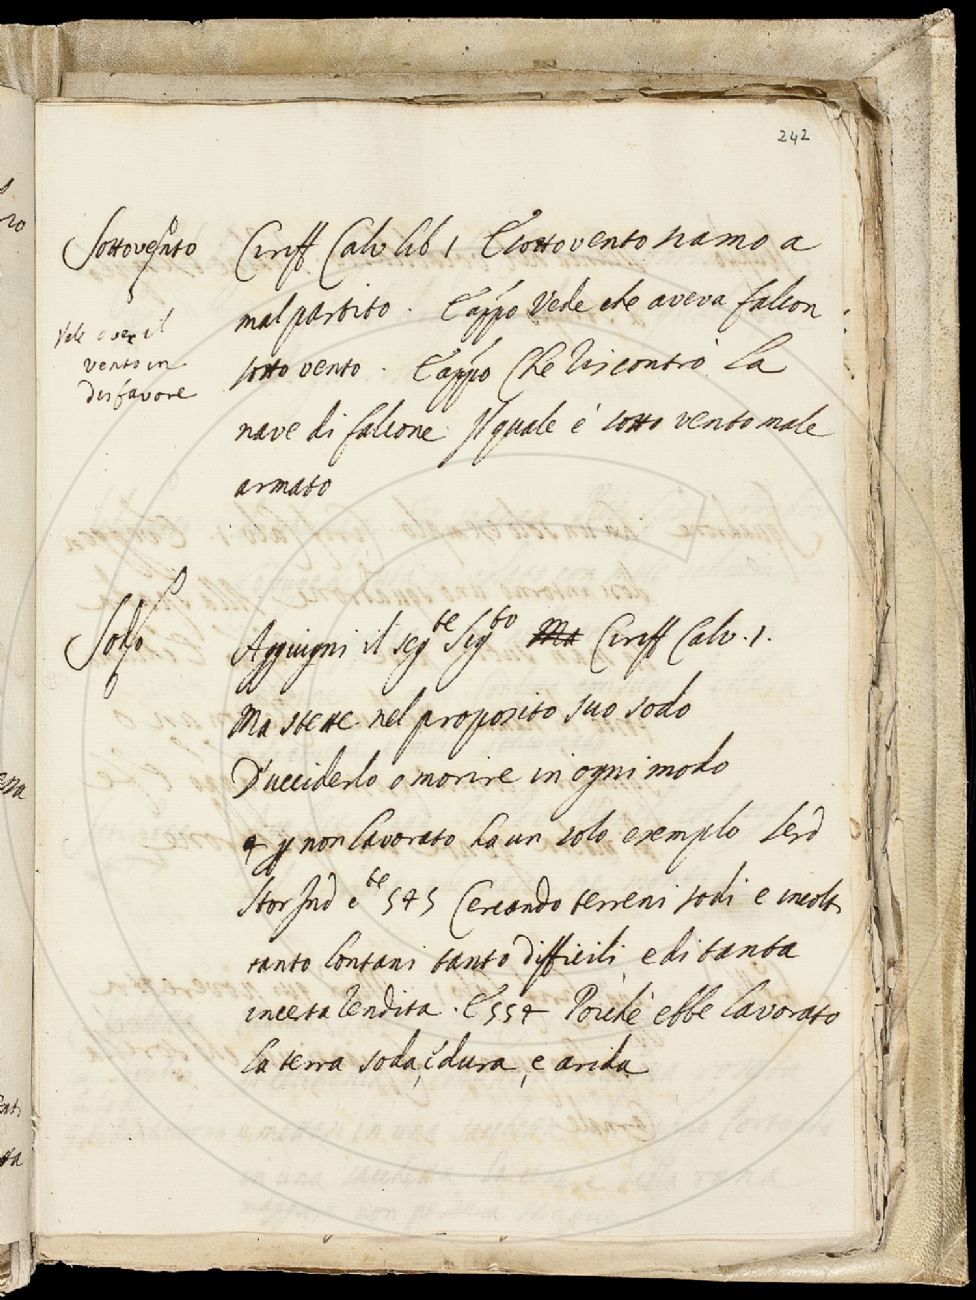 242
Sottovento
Ciriff Calv lib 1 E sottovento siamo a
mal partito . E appo Vede che aveva falcon
sotto vento . E appo Che riscontrò la
nave di falcone Il quale è sotto vento male
armato
Vale aver il
vento in
disfavore
Sodo
Aggiugni il seg.te Sig.to Ma Ciriff Calv. 1.
Ma stette nel proposito suo sodo
D'ucciderlo o morire in ogni modo
non lavorato ha un solo exemplo Serd
Stor Ind c.te 545 Cercando terreni sodi e incolti
tanto lontani tanto difficili, e di tanta
incerta rendita . E 554 Poiché ebbe lavorato
la terra soda, e dura, e arida